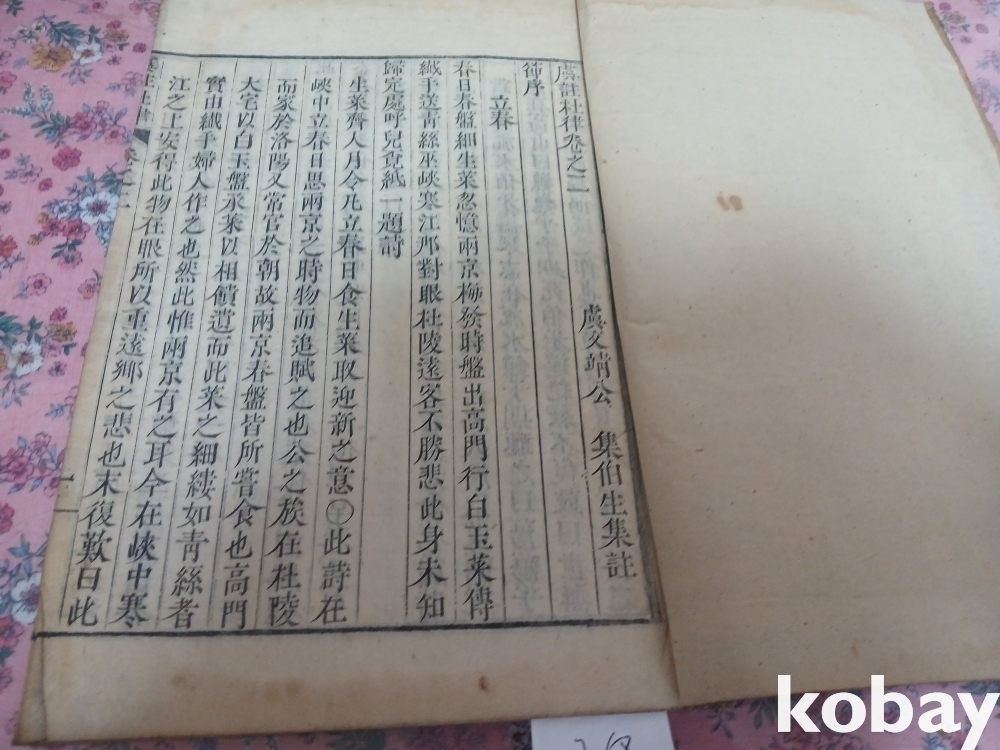 虞註杜律卷之二
虞文靖公 集伯生集註
節序
立春
春日春盤細生菜忽憶兩京梅發時盤出高門行白玉菜傳
纖手送青絲巫峽寒江那對眼杜陵遠客不勝悲此身未知
歸定處呼兒覓紙一題詩
生菜齊人月令凡立春日食生菜取迎新之意 此詩在
峽中立春日思兩京之時物而追賦之也公之族在杜陵
而家於洛陽又常官於朝故兩京春盤皆所嘗食也高門
大宅以白玉盤承菜以相饋遺而此菜之細縷如青絲者
實由纖手婦人作之也然此惟兩京有之耳今在峽中寒
江之上安得此物在眼所以重遠鄉之悲也末復歎曰此
虞註杜律
卷之二
kobay